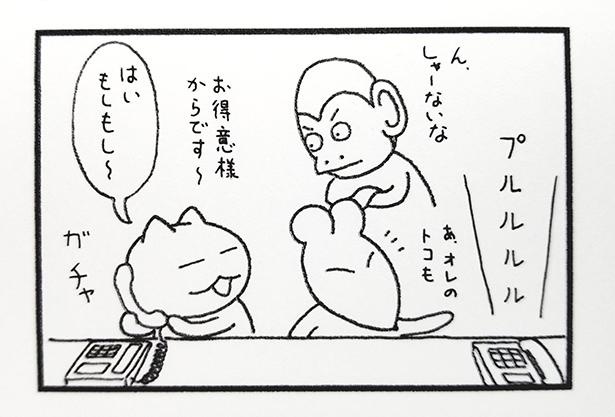 プルルルル
ん、
しゃーないな
あ、オレの
トコも
お得意様
からです〜
はい
もしもし〜
ガチャ